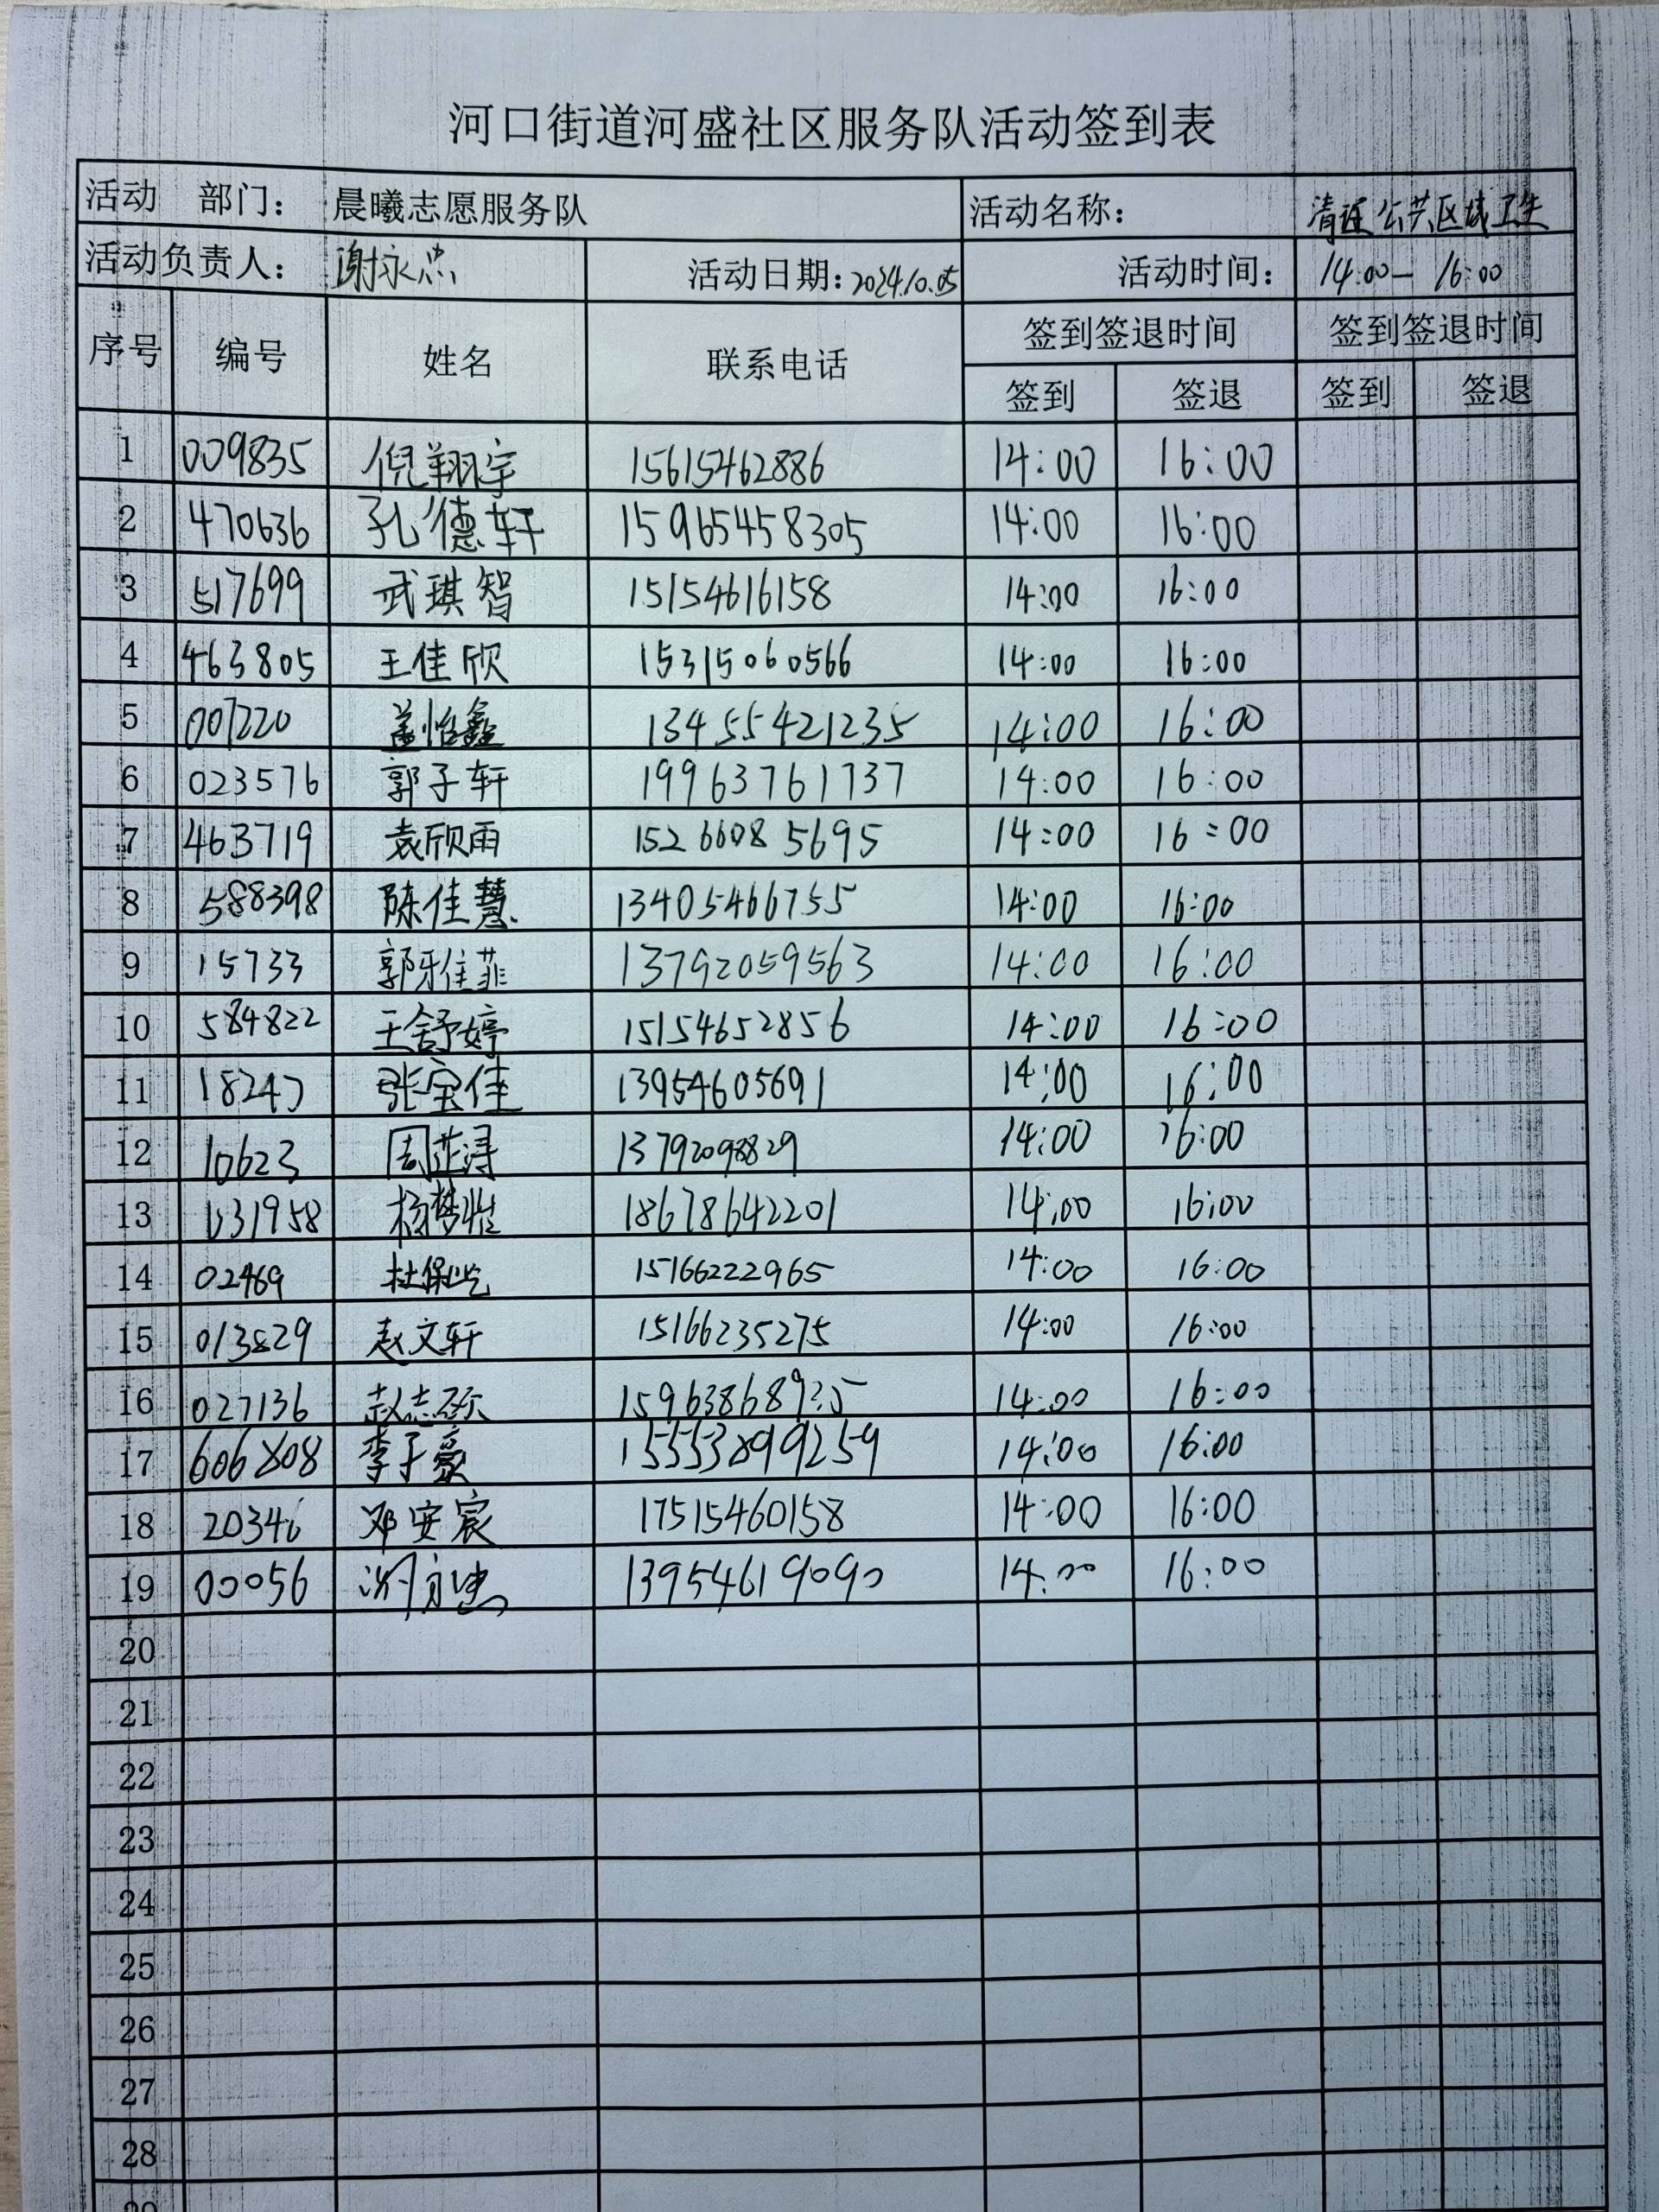 河口街道河盛社区服务队活动签到表
活动 部门： 晨曦志愿服务队 活动名称： 清理公共区域卫生
活动负责人： 谢永忠 活动日期：2024.10.05 活动时间： 14:00— 16:00
序号 编号 姓名 联系电话 签到签退时间 签到签退时间
签到 签退 签到 签退
1 009835 倪翔宇 15615462886 14:00 16:00
2 470636 孔德轩 15965458305 14:00 16:00
3 517699 武琪智 15154616158 14:00 16:00
4 463805 王佳欣 15315060566 14:00 16:00
5 001220 盖怡鑫 13455421235 14:00 16:00
6 023576 郭子轩 19963761737 14:00 16:00
7 463719 袁欣雨 15266085695 14:00 16:00
8 588398 陈佳慧 13405466755 14:00 16:00
9 15733 郭雅菲 13792059563 14:00 16:00
10 584822 王舒婷 15154652856 14:00 16:00
11 18247 张宝佳 13954605691 14:00 16:00
12 10623 周芷浔 13792098829 14:00 16:00
13 031958 杨梦性 18678642201 14:00 16:00
14 02469 杜保屹 15166222965 14:00 16:00
15 013829 赵文轩 15166235275 14:00 16:00
16 027136 赵志硕 15963868935 14:00 16:00
17 606808 李子豪 15553899259 14:00 16:00
18 20346 邓安宸 17515460158 14:00 16:00
19 00056 谢永忠 13954619090 14:00 16:00
20
21
22
23
24
25
26
27
28